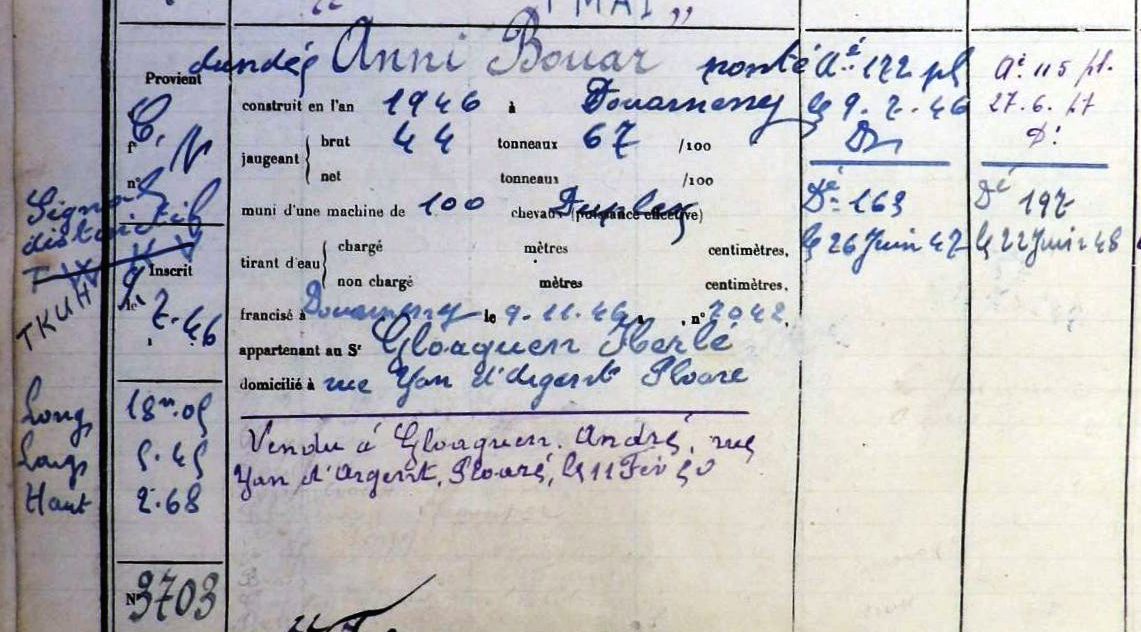 1 MAI "
dundée Anni Bouar ponté
Provient
C. N
fº
nº
Signal distinctif
TKUH
Inscrit
le
9.7.46
Long 18m.05
Larg 5.45
Haut 2.68
Nº 3703
construit en l'an 1946 à Douarnenez
jaugeant { brut 44 tonneaux 67 /100
net tonneaux /100
muni d'une machine de 100 chevaux (puissance effective) Duplex
tirant d'eau { chargé mètres centimètres,
non chargé mètres centimètres,
francisé à Douarnenez le 9.11.46, nº 2042,
appartenant au Sr Gloaguen Iberlé
domicilié à rue Yan d'Argent Ploaré
Vendu à Gloaguen André, rue
Yan d'Argent, Ploaré, le 11 Fév 50
Aé 172 pl
le 9.7.46
Dz
Dé 163
le 26 Juin 47
Aé 115 pl.
27.6.47
Dz
Dé 197
le 22 Juin 48